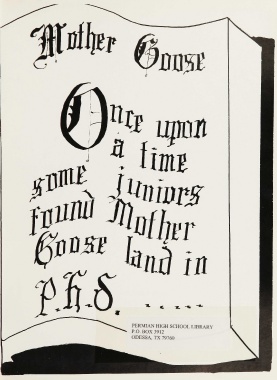 Mother Goose
Once upon
a time
some juniors
found Mother
Goose land in
P.h.S. .....
PERMIAN HIGH SCHOOL LIBRARY
P.O. BOX 3912
ODESSA, TX 79760